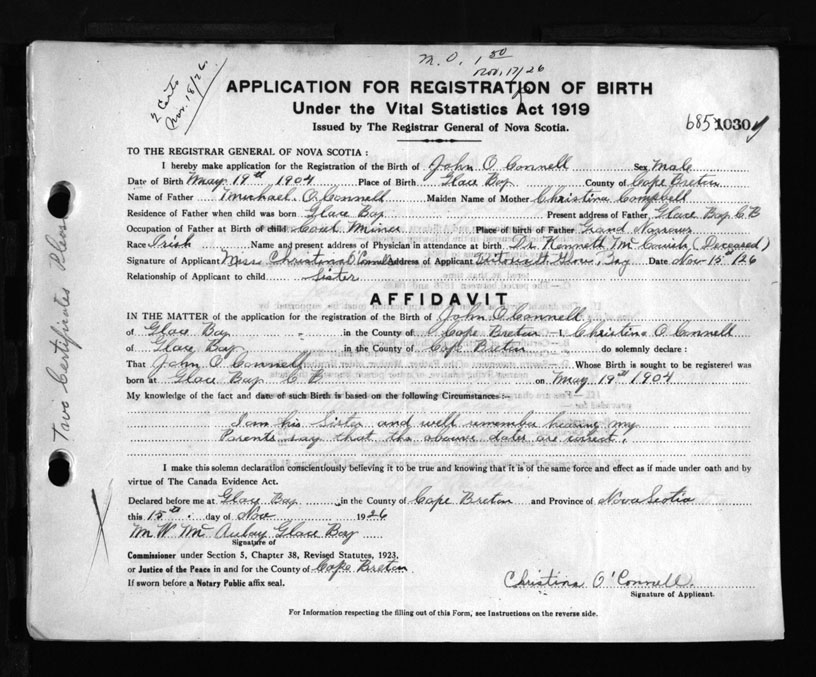 M.O. 1 50
Nov. 17/26
2 Certs
Nov. 18/26.
APPLICATION FOR REGISTRATION OF BIRTH
Under the Vital Statistics Act 1919
Issued by The Registrar General of Nova Scotia.
685 1030
TO THE REGISTRAR GENERAL OF NOVA SCOTIA :
I hereby make application for the Registration of the Birth of John O Connell Sex Male
Date of Birth May 19th 1904 Place of Birth Glace Bay County of Cape Breton
Name of Father Michael O Connell Maiden Name of Mother Christina Campbell
Residence of Father when child was born Glace Bay Present address of Father Glace Bay C B
Occupation of Father at Birth of child Coal Miner Place of birth of Father Grand Narrows
Race Irish Name and present address of Physician in attendance at birth Dr. Kenneth (Deceased)
Signature of Applicant Miss Christina O Connell Address of Applicant Glace Bay Date Nov 15th 26
Relationship of Applicant to child Sister
AFFIDAVIT
IN THE MATTER of the application for the registration of the Birth of John O Connell
of Glace Bay in the County of Cape Breton I Christina O Connell
of Glace Bay in the County of Cape Breton do solemnly declare :
That John O Connell Whose Birth is sought to be registered was
born at Glace Bay C B on May 19th 1904
My knowledge of the fact and date of such Birth is based on the following Circumstances :-
I am his Sister and well remember hearing my
Parents say that the above dates are correct.
I make this solemn declaration conscientiously believing it to be true and knowing that it is of the same force and effect as if made under oath and by
virtue of The Canada Evidence Act.
Declared before me at Glace Bay in the County of Cape Breton and Province of Nova Scotia
this 15th day of Nov 1926
Glace Bay
Signature of
Commissioner under Section 5, Chapter 38, Revised Statutes, 1923,
or Justice of the Peace in and for the County of Cape Breton
If sworn before a Notary Public affix seal.
Christina O'Connell.
Signature of Applicant.
For Information respecting the filling out of this Form, see Instructions on the reverse side.
Two Certificates Please